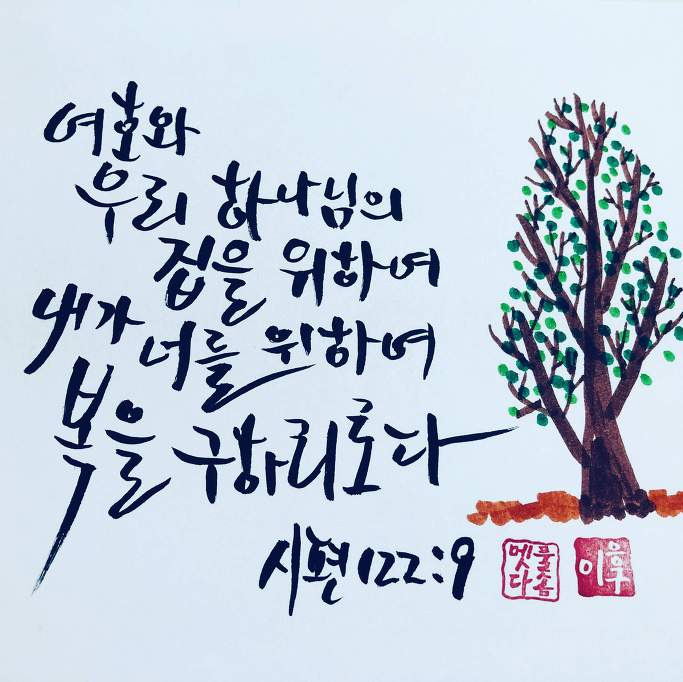 여호와
우리 하나님의
집을 위하여
내가 너를 위하여
복을 구하리로다
시편 122:9